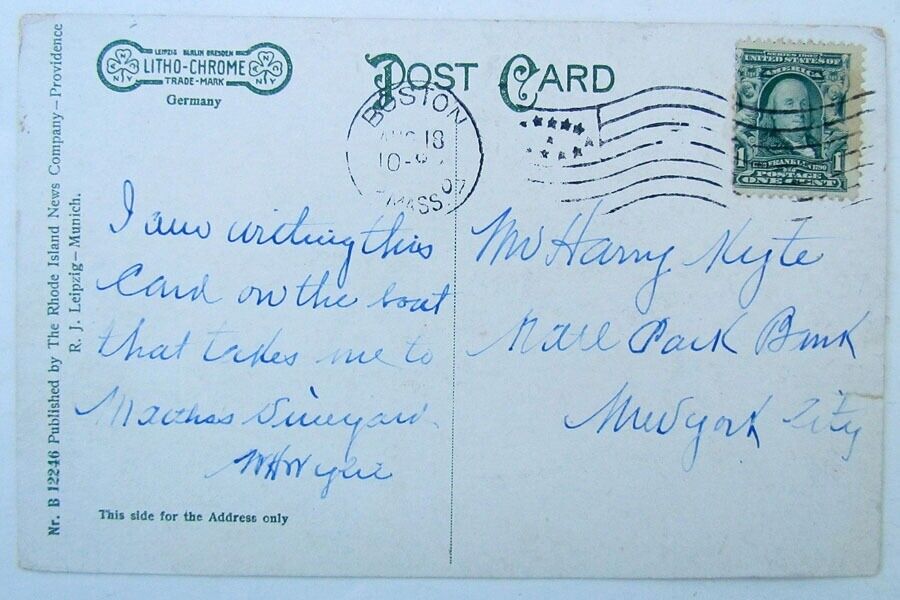 LEIPZIG BERLIN DRESDEN
LITHO-CHROME
TRADE-MARK
Germany
POST CARD
BOSTON
AUG 18
10-
07
MASS.
SERIES 1902
UNITED STATES OF
AMERICA
1 FRANKLIN 1
POSTAGE
ONE CENT
Nr. B 12246 Published by The Rhode Island News Company—Providence
R. J. Leipzig—Munich.
I am writing this
Card on the boat
that takes me to
Marthas Vineyard.
WHWylie
Mr Harry Kyte
Natl Park Bank
New York City
This side for the Address only